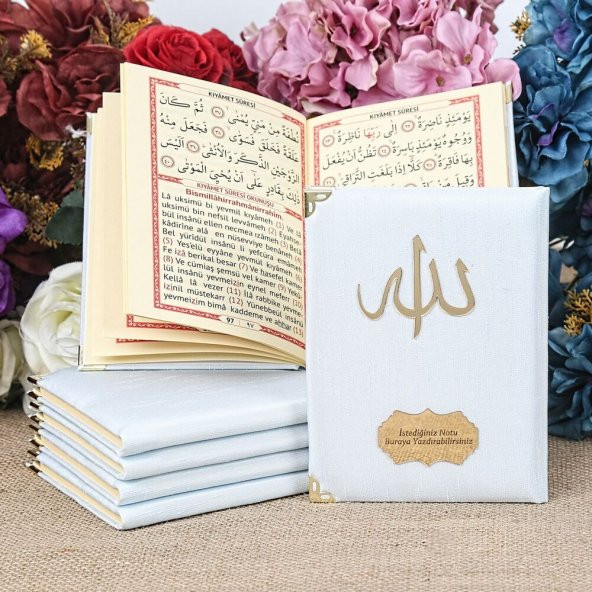 KIYÂMET SÛRESİ
نُطْفَةً مِنْ مَنِيٍّ يُمْنٰى ثُمَّ كَانَ
عَلَقَةً فَخَلَقَ فَسَوّٰى فَجَعَلَ مِنْهُ
الزَّوْجَيْنِ الذَّكَرَ وَالْاُنْثٰى اَلَيْسَ
ذٰلِكَ بِقَادِرٍ عَلٰى اَنْ يُحْيِيَ الْمَوْتٰى
KIYÂMET SÛRESİ OKUNUŞU
Bismillâhirrahmânirrahîm.
Lâ uksimü bi yevmil kıyameh (1) Ve lâ
uksimü bin nefsil levvâmeh (2) Eyahse-
bül insânü ellen necmea ızâmeh (3) Belâ
kâdirîne alâ en nüsevviye benâneh (4)
Bel yürîdül insânü li yefcüra emâmeh
(5) Yes'elü eyyâne yevmül kıyameh (6)
Fe izâ berikal besar (7) Ve hasefel kamer
(8) Ve cümiaş şemsü vel kamer (9) Yekû-
lül insânü yevmeizin eynel meferr (10)
Kellâ lâ vezer (11) İlâ rabbike yevme-
izinil müstekarr (12) Yünebbeül insânü
yevmeizim bimâ kaddeme ve ahhar (13)
97
٩٧
KIYÂMET SÛRESİ
يَوْمَئِذٍ نَاضِرَةٌ اِلٰى رَبِّهَا نَاظِرَةٌ
وَوُجُوهٌ يَوْمَئِذٍ بَاسِرَةٌ تَظُنُّ اَنْ يُفْعَلَ
بِهَا فَاقِرَةٌ كَلَّا اِذَا بَلَغَتِ التَّرَاقِيَ
وَقِيلَ مَنْ
الله
İstediğiniz Notu
Buraya Yazdırabilirsiniz